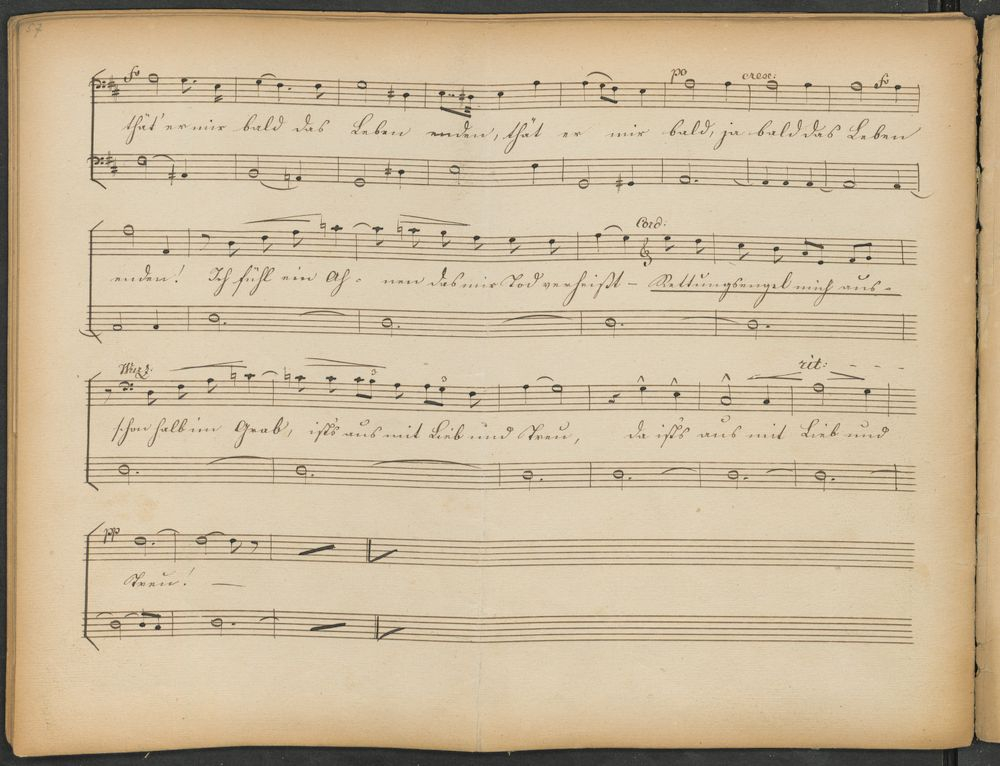 57
fo po cresc: fo
thät' er mir bald das Leben enden, thät er mir bald, ja bald das Leben
Cord:
enden! Ich fühl ein Ah- nen das mir Tod verheißt – Rettungsengel mich aus-
Wurz: rit: - - - -
schon halb im Grab, ists aus mit Lieb und Treu, da ists aus mit Lieb und
pp
Treu! —